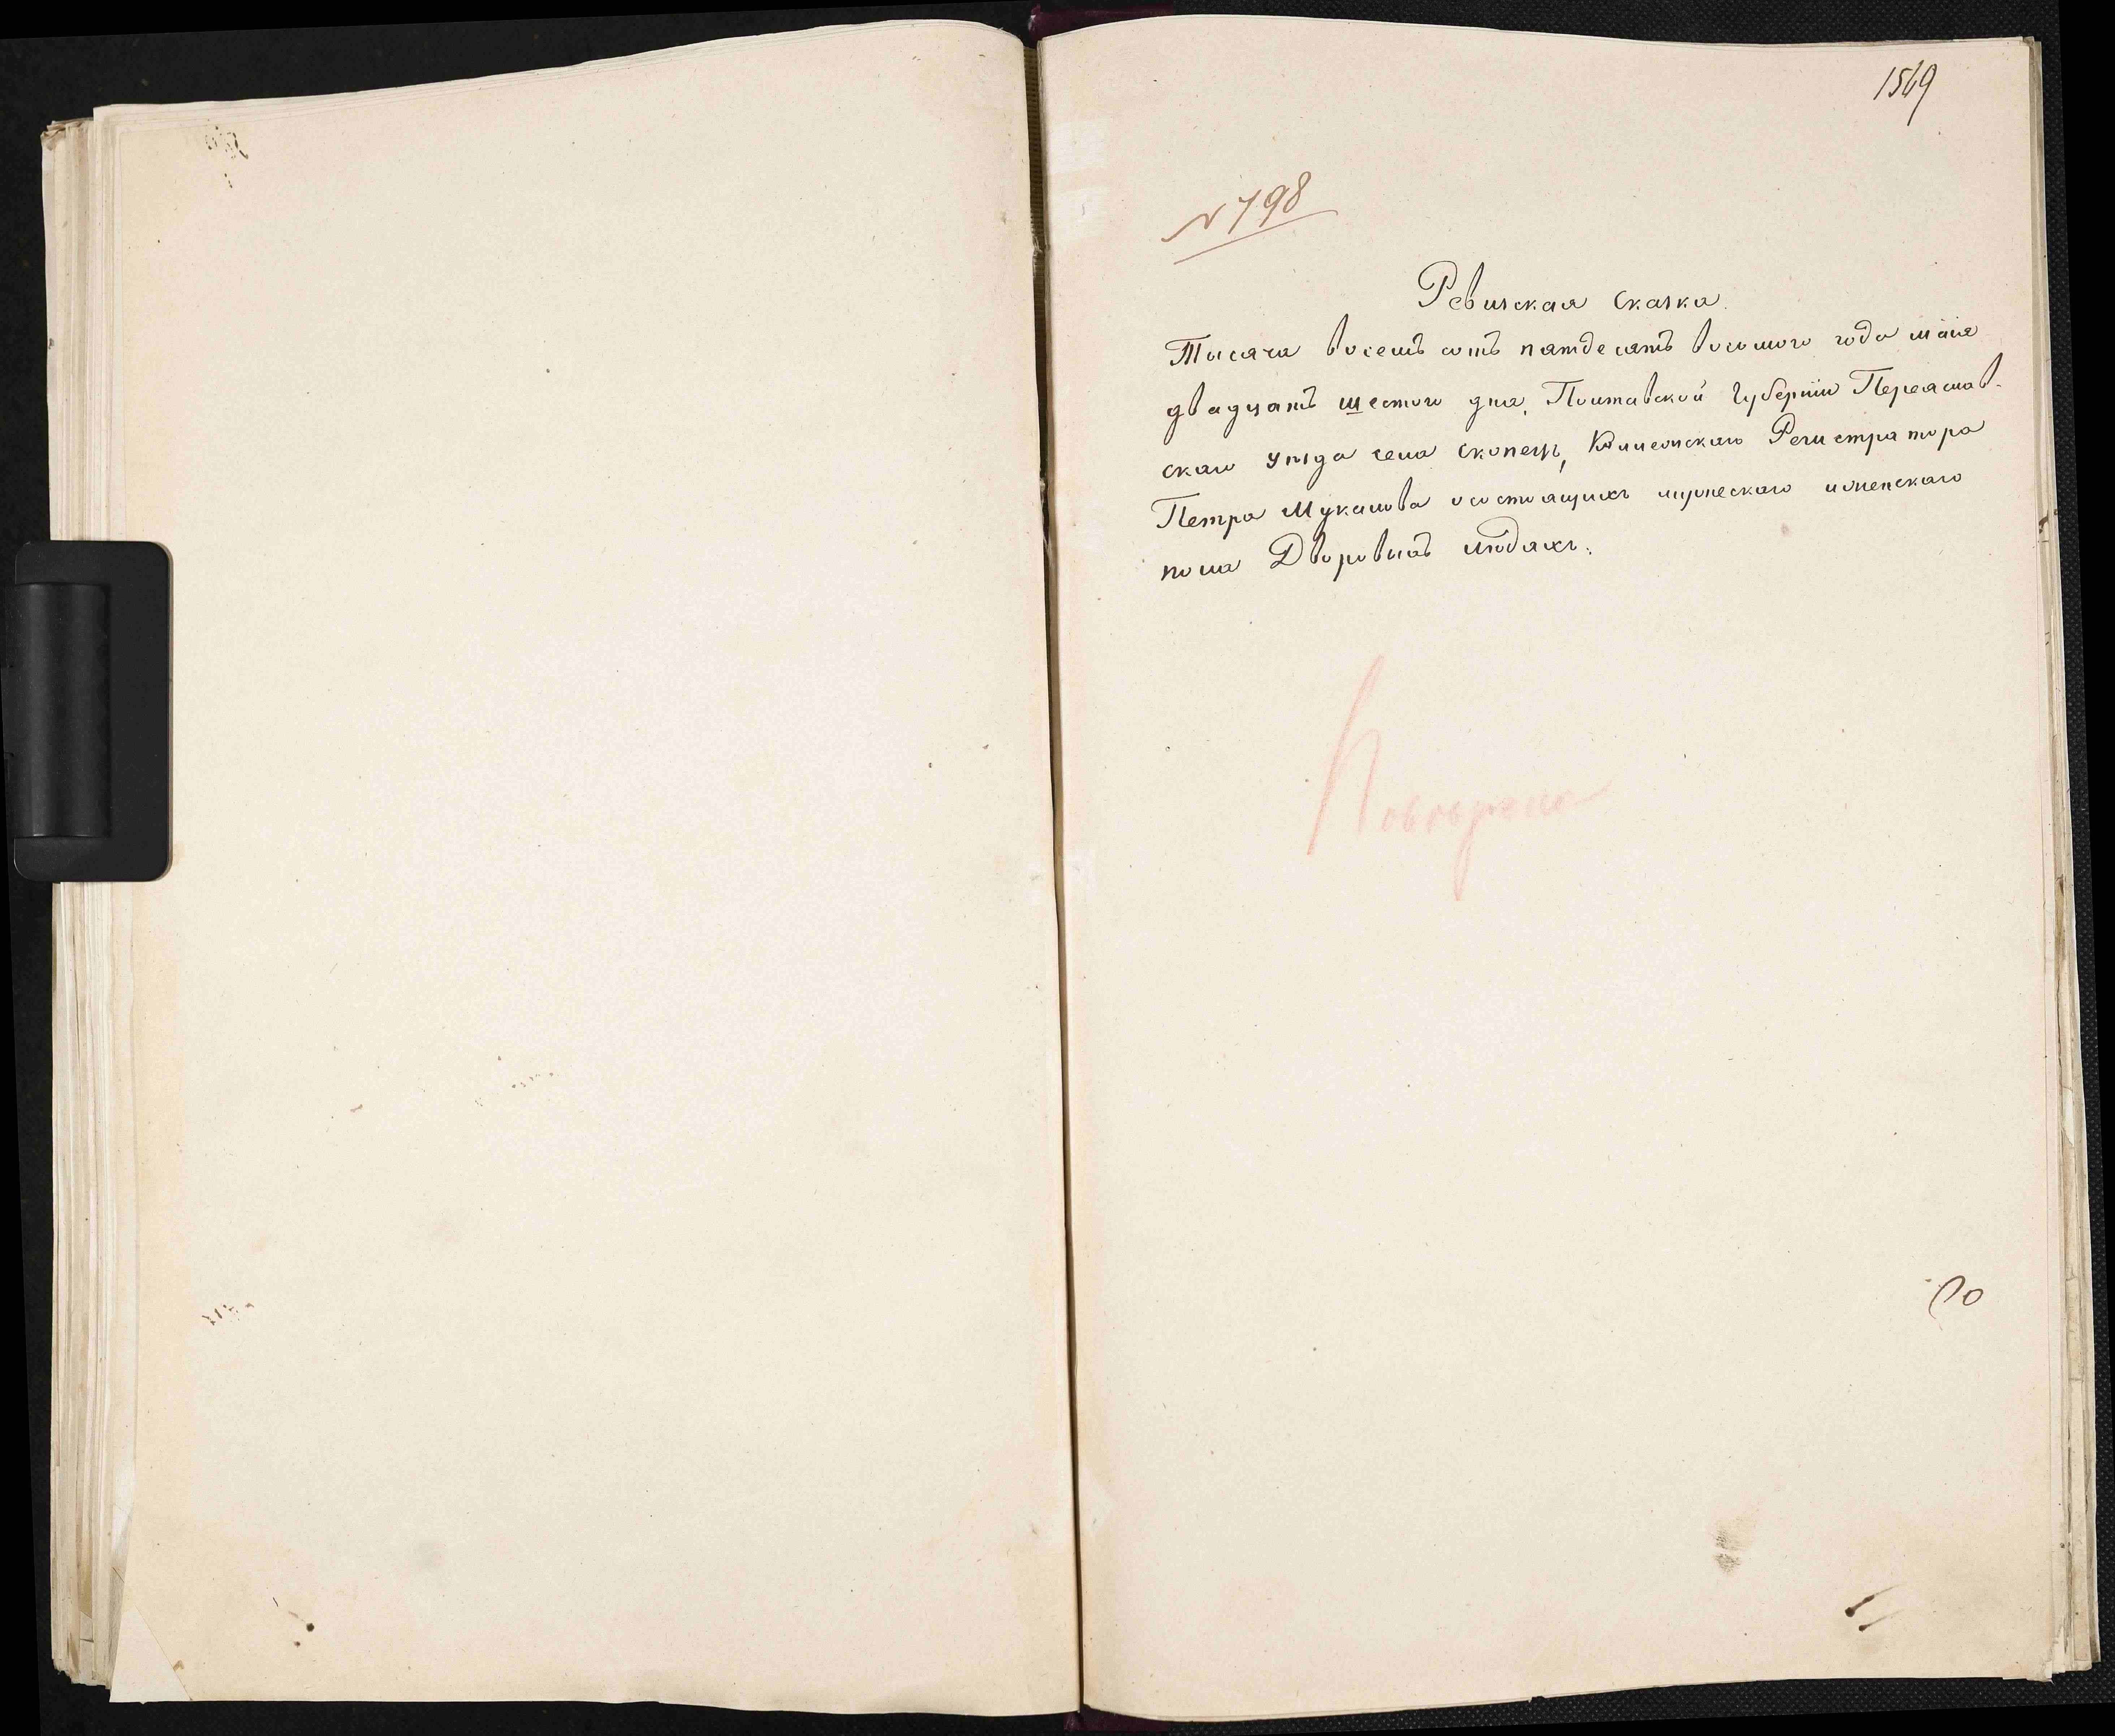 1569
№ 798
Ревизская сказка.
Тысяча восемь сотъ пятдесятъ восьмого года маія
двадцать шестого дня, Полтавской Губерніи Переяслав-
скаго уѣзда села Скопецъ, Коллежскаго Регистратора
Петра Мукалова о состоящихъ мужескаго и женскаго
пола Дворовыхъ людяхъ.